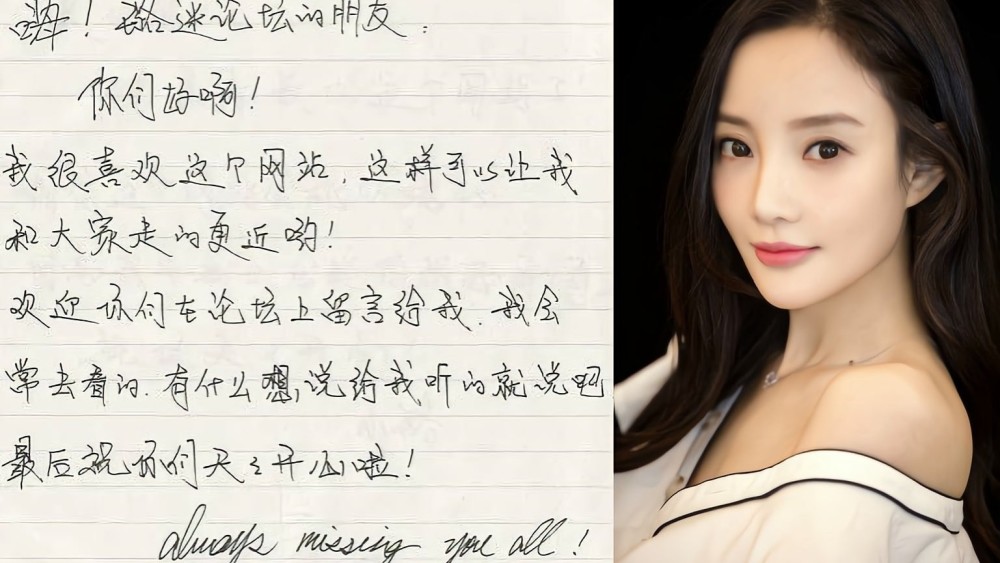 嗨！璐迷论坛的朋友：
你们好啊！
我很喜欢这个网站，这样可以让我
和大家走的更近哟！
欢迎你们在论坛上留言给我，我会
常去看的.有什么想说给我听的就说吧
最后祝你们天々开心啦！
always missing you all !